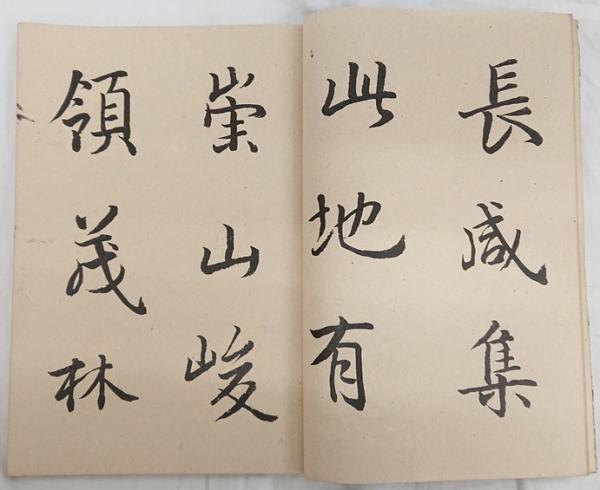 長咸集
此地有
崇山峻
領茂林